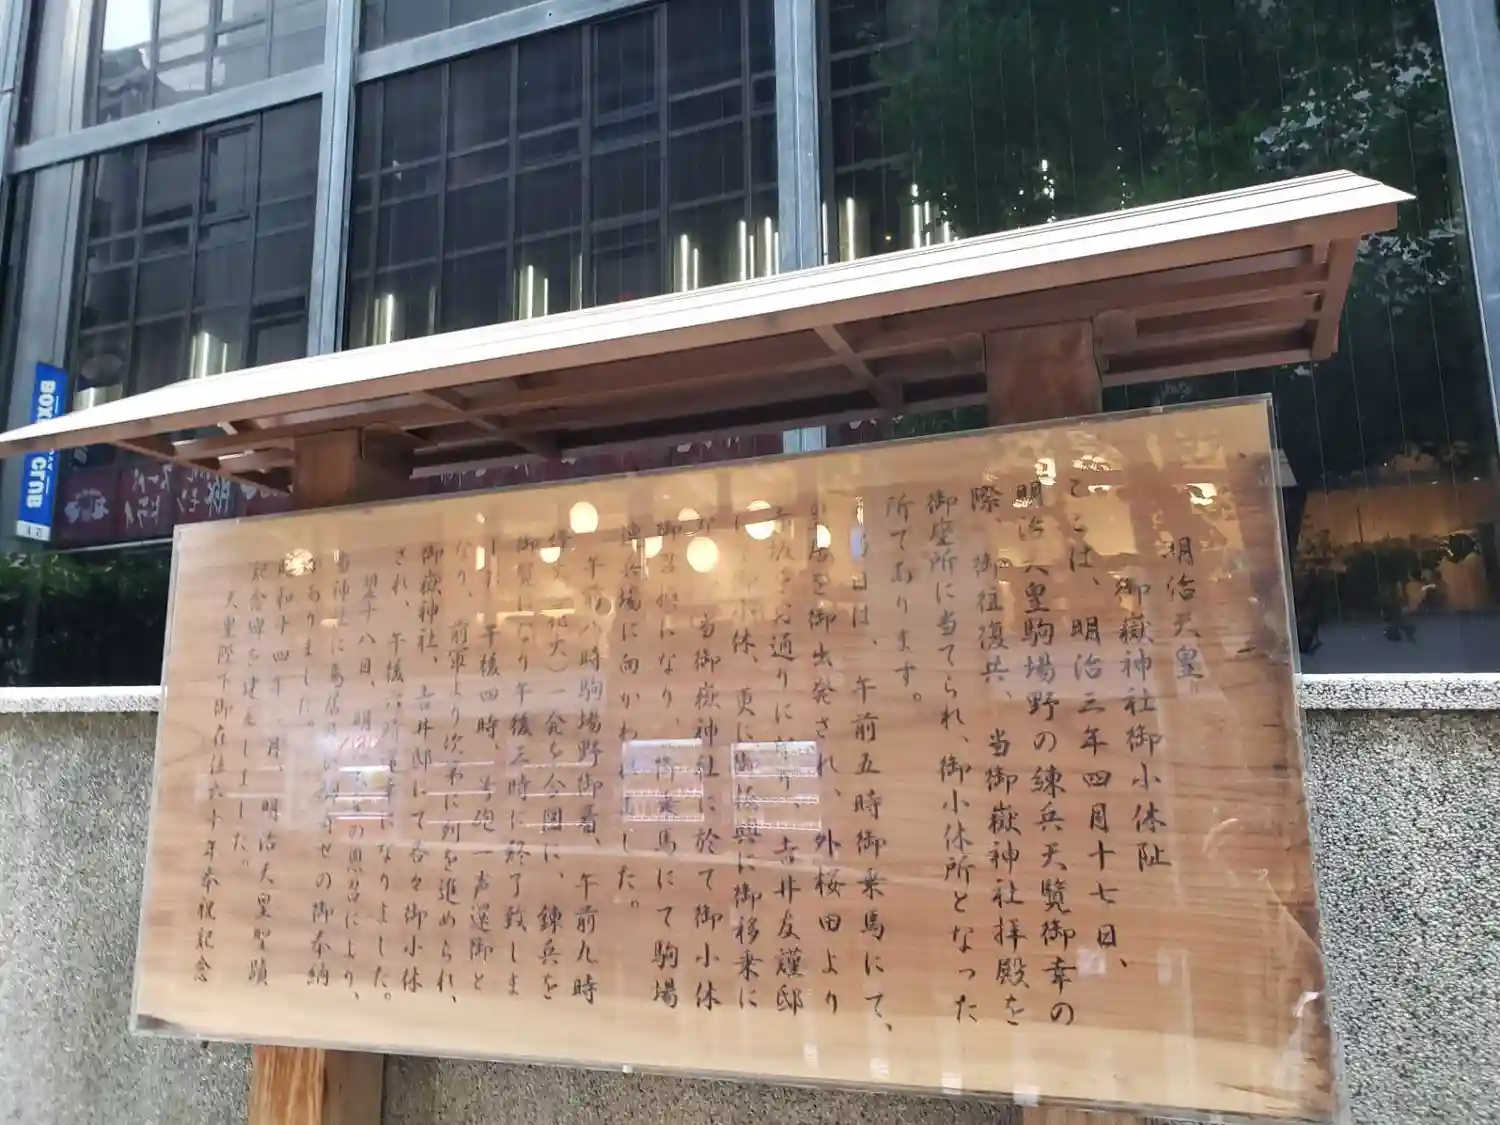 明治天皇
御嶽神社御小休阯
ここは、明治三年四月十七日、
明治天皇駒場野の練兵天覧御幸の
際、御往復共、当御嶽神社拝殿を
御座所に当てられ、御小休所となった
所であります。
日は、午前五時御乗馬にて、
を御出発され、外桜田より
坂をお通りになり、吉井友謹邸
小休、更に御板輿に御移乗に
当御嶽神社に於て御小休
になり、御乗馬にて駒場
練兵場に向かわれました。
午前八時駒場野御着、午前九時
一発を合図に、錬兵を
御覧になり午後三時に終了致しま
午後四時、号砲一声還御と
なり、前軍より次第に列を進められ、
御嶽神社、吉井邸にて各々御小休
され、午後六時
になりました。
翌十八日、明
の思召により、
当神社に
の御奉納
がありました。
昭和十四年
月、明治天皇聖蹟
記念碑を建立しました。
天皇陛下御在位六十年奉祝記念
BOX
CLUB